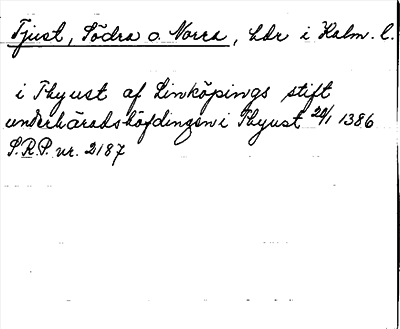 Tjust, Södra o. Norra, hdr i Kalm. l.
i Thyust af Linköpings stift
underhäradshöfdingen i Thyust 20/1 1386
S.R.P. nr. 2187